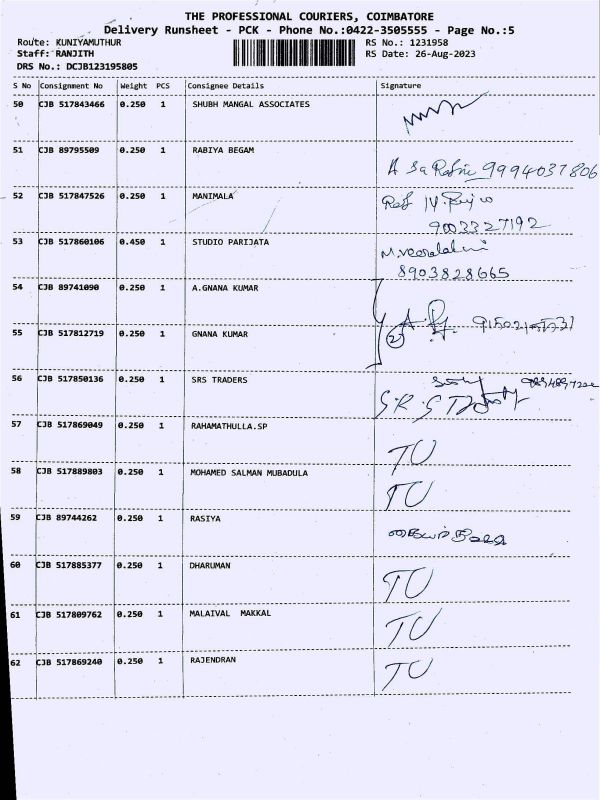 THE PROFESSIONAL COURIERS, COIMBATORE
Delivery Runsheet - PCK - Phone No.:0422-3505555 - Page No.:5
Route: KUNIYAMUTHUR RS No.: 1231958
Staff: RANJITH RS Date: 26-Aug-2023
DRS No.: DCJB123195805
S No Consignment No Weight PCS Consignee Details Signature
50 CJB 517843466 0.250 1 SHUBH MANGAL ASSOCIATES
51 CJB 89795509 0.250 1 RABIYA BEGAM
9994037806
52 CJB 517847526 0.250 1 MANIMALA
9003327192
53 CJB 517860106 0.450 1 STUDIO PARIJATA
8903828665
54 CJB 89741090 0.250 1 A.GNANA KUMAR
55 CJB 517812719 0.250 1 GNANA KUMAR
56 CJB 517850136 0.250 1 SRS TRADERS
57 CJB 517869049 0.250 1 RAHAMATHULLA.SP
TU
58 CJB 517889803 0.250 1 MOHAMED SALMAN MUBADULA
TU
59 CJB 89744262 0.250 1 RASIYA
60 CJB 517885377 0.250 1 DHARUMAN
TU
61 CJB 517809762 0.250 1 MALAIVAL MAKKAL
TU
62 CJB 517869240 0.250 1 RAJENDRAN
TU